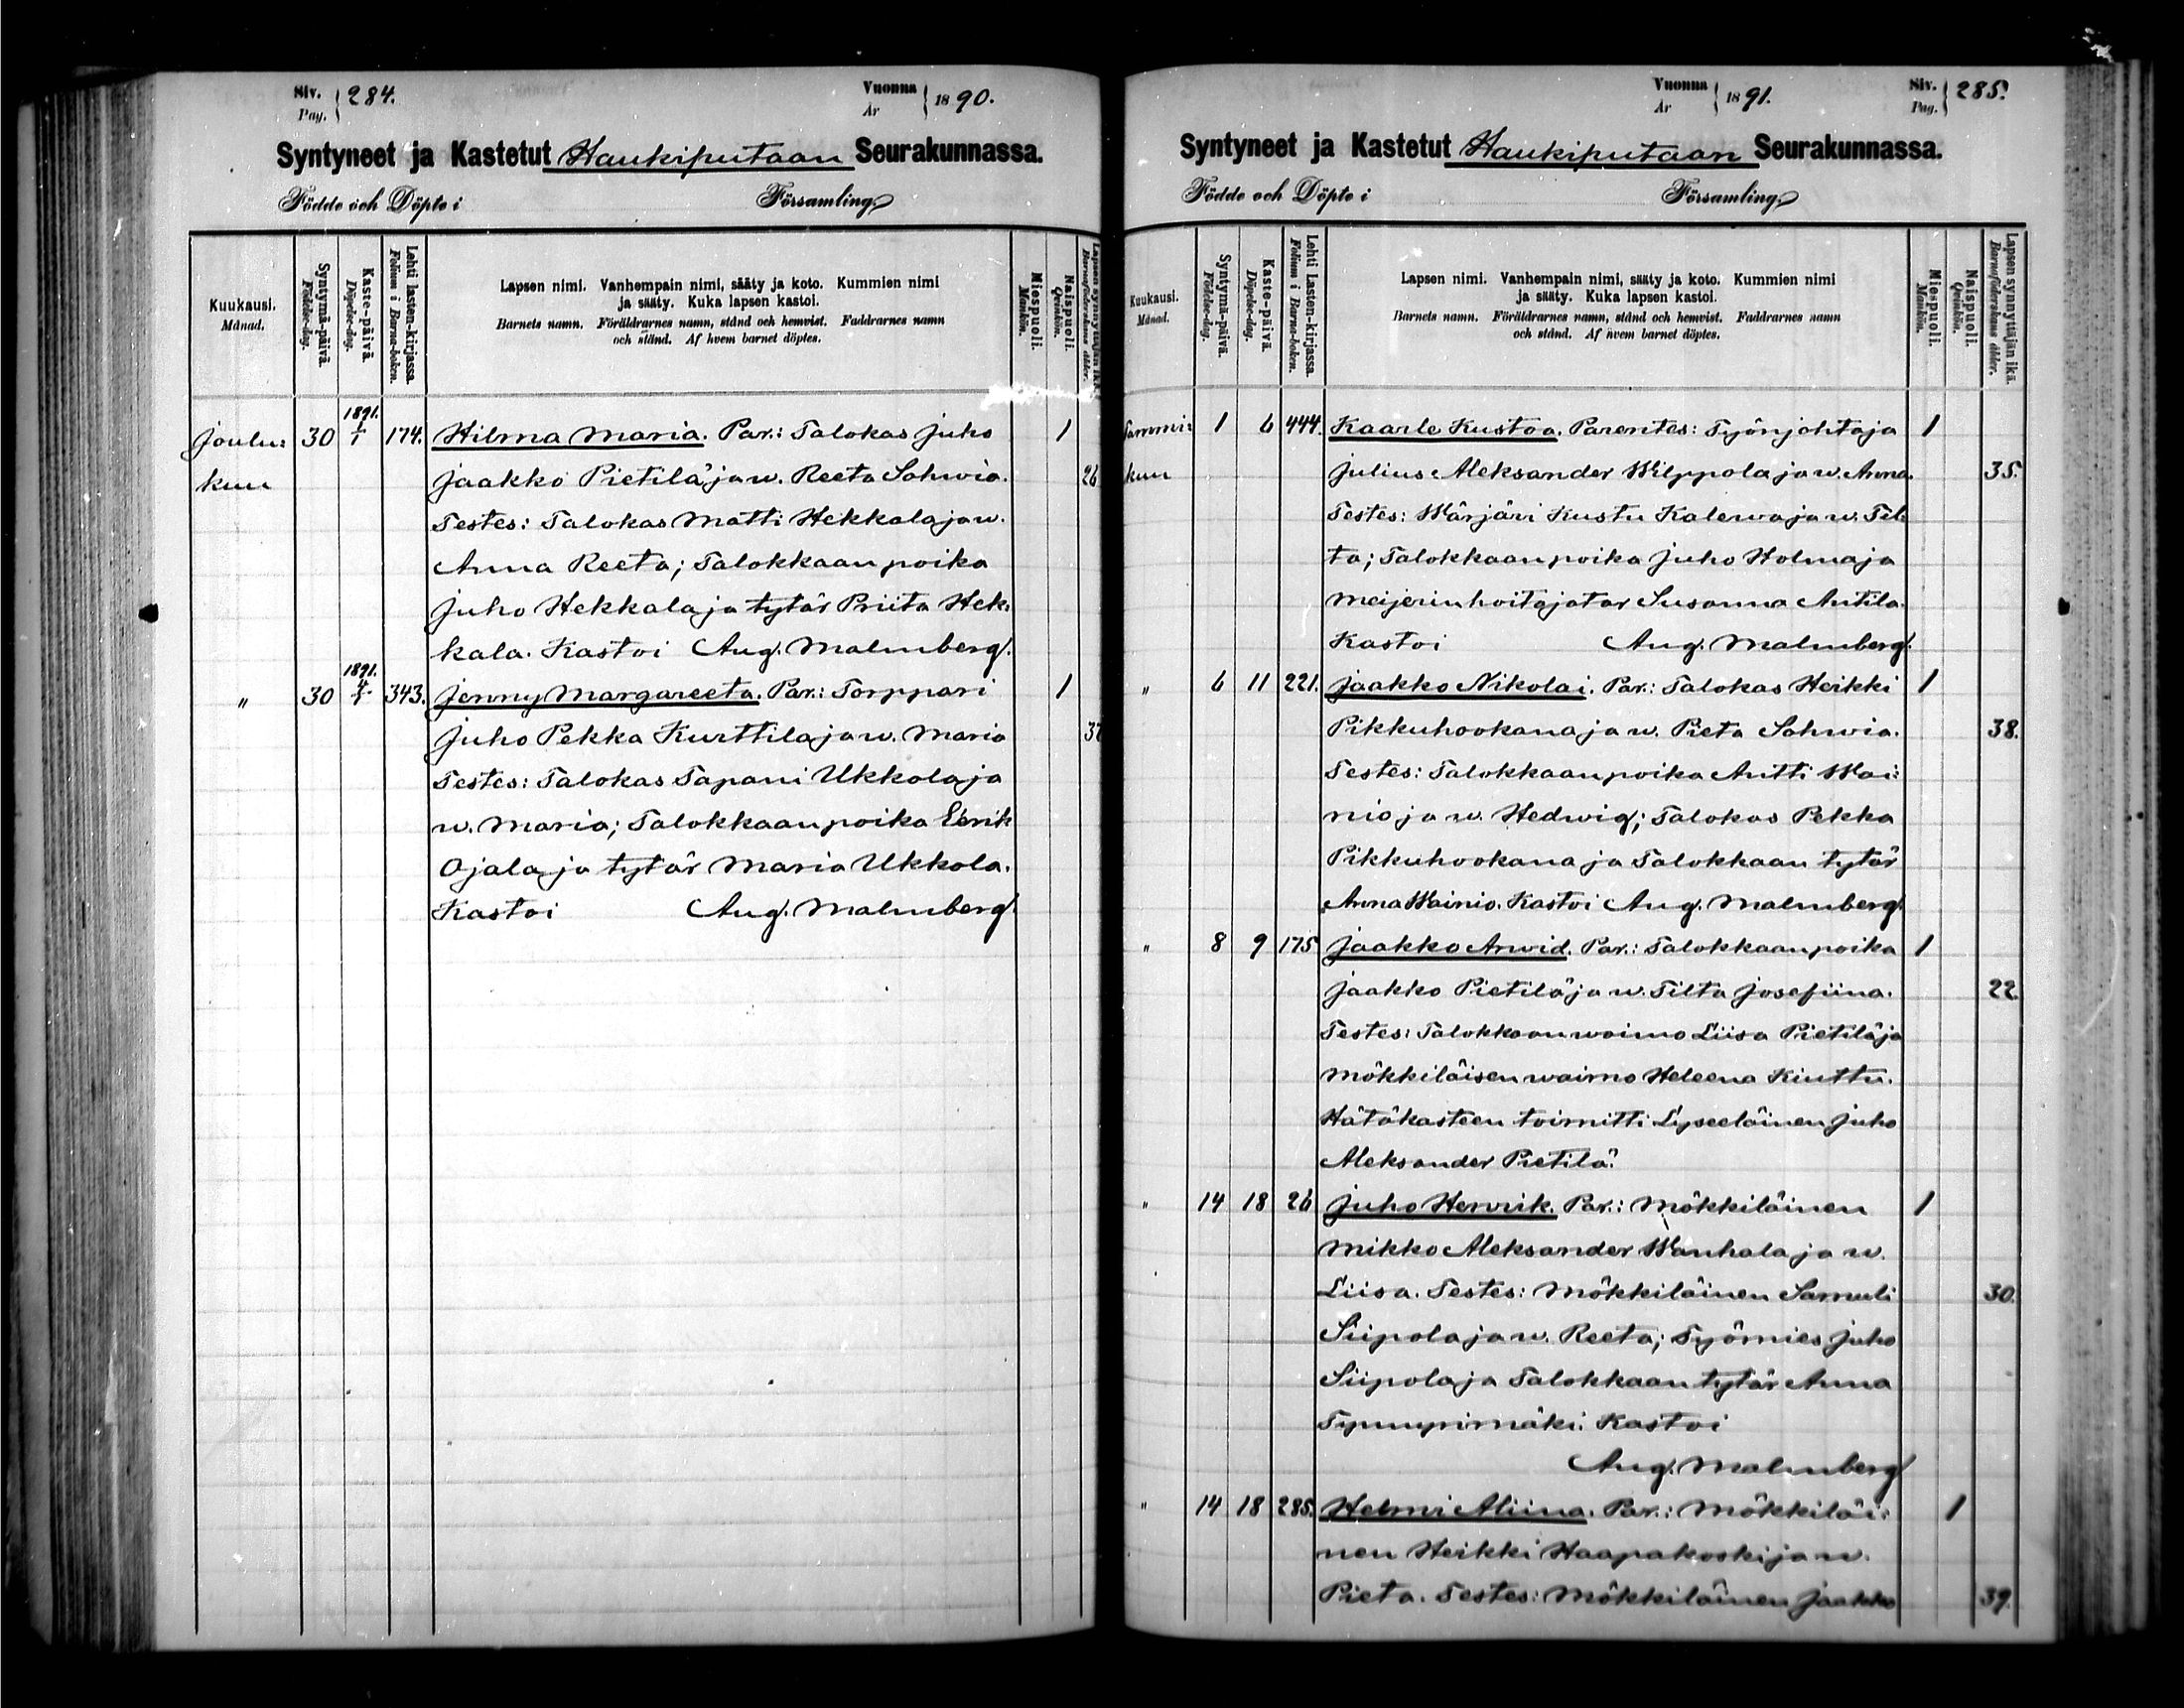 Siv. 284. Vuonna 1890.
Pag. År
Syntyneet ja Kastetut Haukiputaan Seurakunnassa.
Födde och Döpte i Församling
Kuukausi.
Månad.
Syntymä-päivä.
Födelse-dag.
Kaste-päivä.
Döpelse-dag.
Lehti lasten-kirjassa.
Folium i Barna-boken.
Lapsen nimi. Vanhempain nimi, sääty ja koto. Kummien nimi
ja sääty. Kuka lapsen kastoi.
Barnets namn. Föräldrarnes namn, stånd och hemvist. Faddrarnes namn
och stånd. Af hvem barnet döptes.
Miespuoli.
Mankön.
Naispuoli.
Qvinkön.
Lapsen synnyttäjän ikä.
Barnaföderskans ålder.
Joulu: 30 1891. 1/1 174. Hilma Maria. Par.: Talokas Juho 1
kuu Jaakko Pietilä ja w. Reeta Sohwia. 26
Testes: Talokas Matti Hekkala ja w.
Anna Reeta; Talokkaan poika
Juho Hekkala ja tytär Priita Hek:
kala. Kastoi Aug. Malmberg.
" 30 1891. 4/1 343. Jenny Margareeta. Par.: Torppari 1
Juho Pekka Kurttila ja w. Maria
Testes: Talokas Tapani Ukkola ja
w. Maria; Talokkaan poika Eerik
Ojala ja tytär Maria Ukkola.
Kastoi Aug. Malmberg.
Vuonna 1891. Siv. 285.
År Pag.
Syntyneet ja Kastetut Haukiputaan Seurakunnassa.
Födde och Döpte i Församling
Kuukausi.
Månad.
Syntymä-päivä.
Födelse-dag.
Kaste-päivä.
Döpelse-dag.
Lehti Lasten-kirjassa.
Folium i Barna-boken.
Lapsen nimi. Vanhempain nimi, sääty ja koto. Kummien nimi
ja sääty. Kuka lapsen kastoi.
Barnets namn. Föräldrarnes namn, stånd och hemvist. Faddrarnes namn
och stånd. Af hvem barnet döptes.
Miespuoli.
Mankön.
Naispuoli.
Qvinkön.
Lapsen synnyttäjän ikä.
Barnaföderskans ålder.
Tammi: 1 6 444. Kaarle Kustaa. Parentes: Työnjohtaja 1
kuu Julius Aleksander Wilppola ja w. Anna. 35.
Testes: Wärjäri Kustu Kalewa ja w. Til:
ta; Talokkaan poika Juho Holma ja
Meijerinhoitajatar Susanna Antila.
Kastoi Aug. Malmberg.
" 6 11 221. Jaakko Nikolai. Par.: Talokas Heikki 1
Pikkuhookana ja w. Pieta Sohwia. 38.
Testes: Talokkaan poika Antti Wai:
nio ja w. Hedwig; Talokas Pekka
Pikkuhookana ja Talokkaan tytär
Anna Wainio. Kastoi Aug. Malmberg.
" 8 9 175 Jaakko Arwid. Par.: Talokkaan poika 1
Jaakko Pietilä ja w. Tilta Josefiina. 22.
Testes: Talokkaan waimo Liisa Pietilä ja
Mökkiläisen waimo Heleena Kiuttu.
Hätäkasteen toimitti Lyseeläinen Juho
Aleksander Pietilä.
" 14 18 26 Juho Henrik. Par.: Mökkiläinen 1
Mikko Aleksander Wanhala ja w.
Liisa. Testes: Mökkiläinen Samuli 30.
Siipola ja w. Reeta; Työmies Juho
Siipola ja Talokkaan tytär Anna
Kastoi
Aug. Malmberg
" 14 18 285. Helmi Aliina. Par.: Mökkiläi: 1
nen Heikki Haapakoski ja w.
Pieta. Testes: Mökkiläinen Jaakko 39.